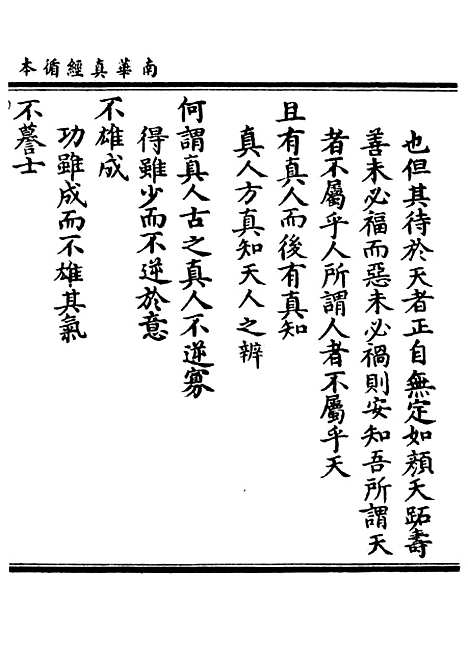 南華真經循本
也但其待於天者正自無定如顏夭跖壽
善未必福而惡未必禍則安知吾所謂天
者不屬乎人所謂人者不屬乎天
且有真人而後有真知
真人方真知天人之辨
何謂真人古之真人不逆寡
得雖少而不逆於意
不雄成
功雖成而不雄其氣
不謩士